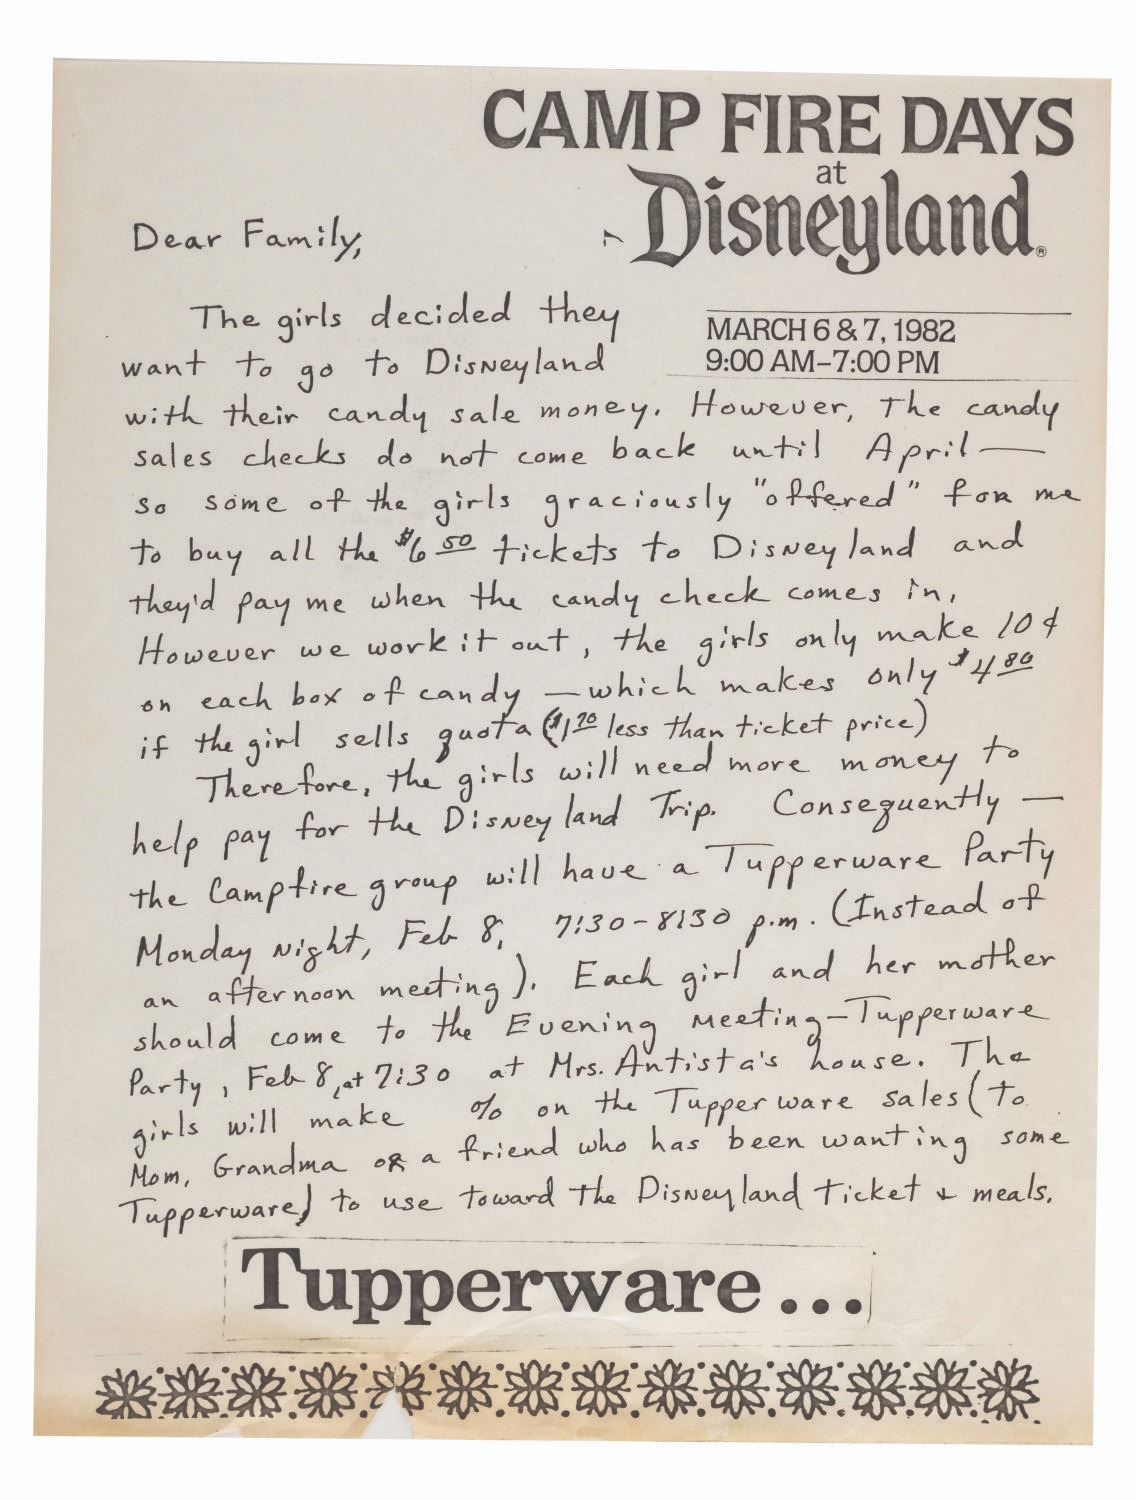 CAMP FIRE DAYS
at
Disneyland®
Dear Family,
MARCH 6 & 7, 1982
9:00 AM–7:00 PM
The girls decided they
want to go to Disneyland
with their candy sale money. However, the candy
sales checks do not come back until April —
so some of the girls graciously "offered" for me
to buy all the $6 50 tickets to Disneyland and
they'd pay me when the candy check comes in,
However we work it out, the girls only make 10¢
on each box of candy — which makes only $4 80
if the girl sells quota ($1 70 less than ticket price)
Therefore, the girls will need more money to
help pay for the Disneyland Trip. Consequently —
the Campfire group will have a Tupperware Party
Monday Night, Feb 8, 7:30-8:30 p.m. (Instead of
an afternoon meeting). Each girl and her mother
should come to the Evening Meeting-Tupperware
Party, Feb 8, at 7:30 at Mrs. Antista's house. The
girls will make % on the Tupperware sales (to
Mom, Grandma or a friend who has been wanting some
Tupperware) to use toward the Disneyland ticket & meals.
Tupperware...